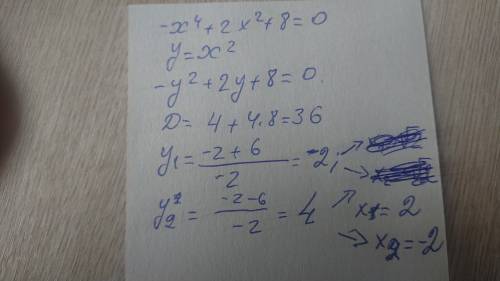 -x⁴+2x²+8=0
y=x²
-y²+2y+8=0.
D= 4+4.8=36
y₁= (-2+6)/(-2) = -2;
y₂= (-2-6)/(-2) = 4 ↗ x₁=2
→ x₂=-2